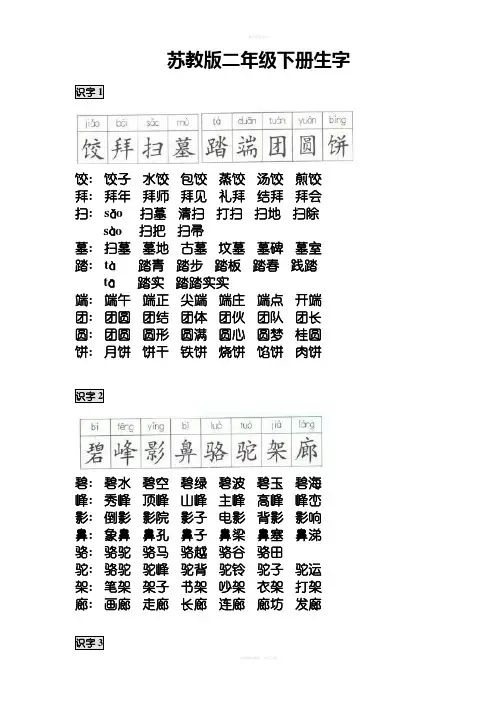 苏教版二年级下册生字
识字1
jiǎo bài sǎo mù tà duān tuán yuán bǐng
饺 拜 扫 墓 踏 端 团 圆 饼
饺: 饺子 水饺 包饺 蒸饺 汤饺 煎饺
拜: 拜年 拜师 拜见 礼拜 结拜 拜会
扫: sǎo 扫墓 清扫 打扫 扫地 扫除
sào 扫把 扫帚
墓: 扫墓 墓地 古墓 坟墓 墓碑 墓室
踏: tà 踏青 踏步 踏板 踏春 践踏
tā 踏实 踏踏实实
端: 端午 端正 尖端 端庄 端点 开端
团: 团圆 团结 团体 团伙 团队 团长
圆: 团圆 圆形 圆满 圆心 圆梦 桂圆
饼: 月饼 饼干 铁饼 烧饼 馅饼 肉饼
识字2
bì fēng yǐng bí luò tuó jià láng
碧 峰 影 鼻 骆 驼 架 廊
碧: 碧水 碧空 碧绿 碧波 碧玉 碧海
峰: 秀峰 顶峰 山峰 主峰 高峰 峰峦
影: 倒影 影院 影子 电影 背影 影响
鼻: 象鼻 鼻孔 鼻子 鼻梁 鼻塞 鼻涕
骆: 骆驼 骆马 骆越 骆谷 骆田
驼: 骆驼 驼峰 驼背 驼铃 驼子 驼运
架: 笔架 架子 书架 吵架 衣架 打架
廊: 画廊 走廊 长廊 连廊 廊坊 发廊
识字3